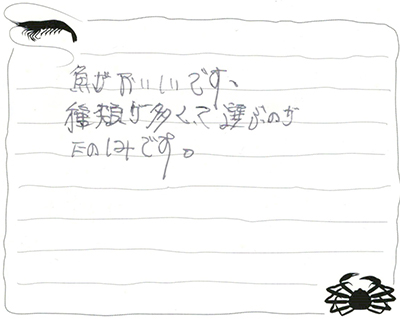 魚がおいしいです、
種類が多くて選ぶのが
たのしみです。